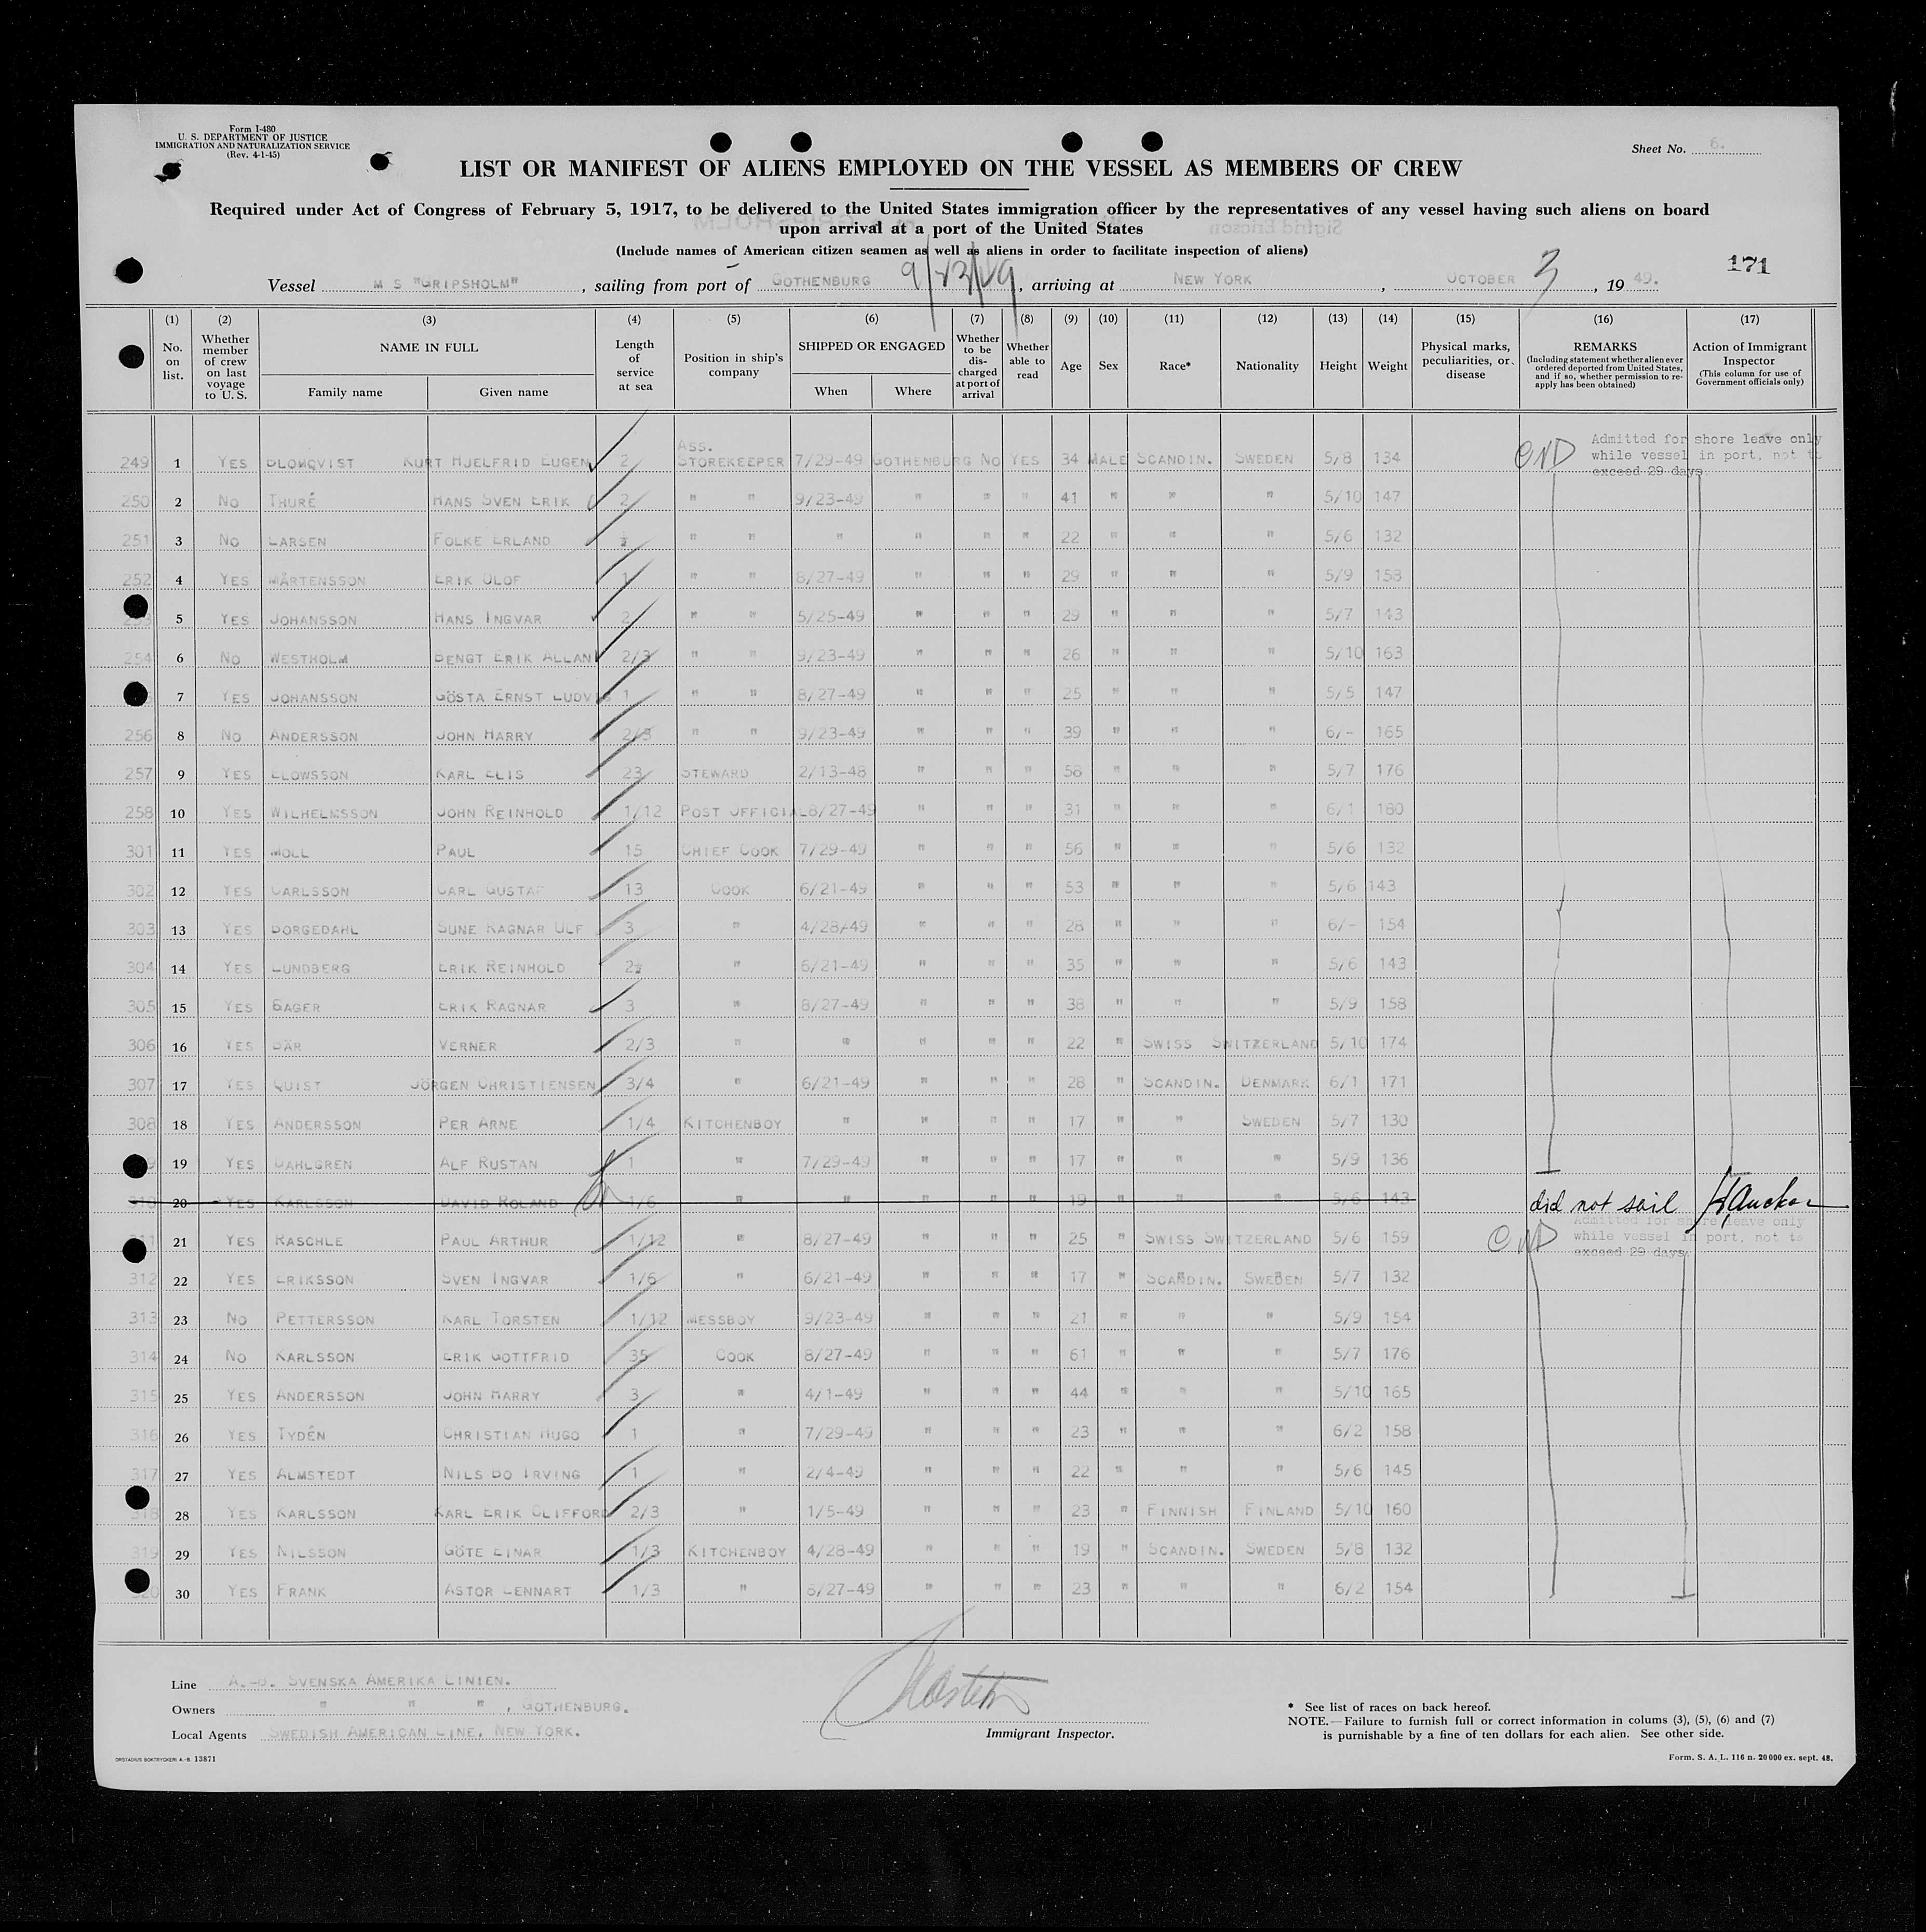 Form I-480
U. S. DEPARTMENT OF JUSTICE
IMMIGRATION AND NATURALIZATION SERVICE
(Rev. 4-1-45)
Sheet No. 6.
LIST OR MANIFEST OF ALIENS EMPLOYED ON THE VESSEL AS MEMBERS OF CREW
Required under Act of Congress of February 5, 1917, to be delivered to the United States immigration officer by the representatives of any vessel having such aliens on board
upon arrival at a port of the United States
(Include names of American citizen seamen as well as aliens in order to facilitate inspection of aliens)
171
Vessel M S "GRIPSHOLM", sailing from port of GOTHENBURG 9/23/49, arriving at NEW YORK, OCTOBER 3, 19 49.
(1) No. on list. (2) Whether member of crew on last voyage to U. S. (3) NAME IN FULL Family name Given name (4) Length of service at sea (5) Position in ship's company (6) SHIPPED OR ENGAGED When Where (7) Whether to be dis-charged at port of arrival (8) Whether able to read (9) Age (10) Sex (11) Race* (12) Nationality (13) Height (14) Weight (15) Physical marks, peculiarities, or disease (16) REMARKS (Including statement whether alien ever ordered deported from United States, and if so, whether permission to re-apply has been obtained) (17) Action of Immigrant Inspector (This column for use of Government officials only)
249 1 YES BLOMQVIST KURT HJELFRID EUGEN 2 ASS. STOREKEEPER 7/29-49 GOTHENBURG NO YES 34 MALE SCANDIN. SWEDEN 5/8 134 Admitted for shore leave only while vessel in port, not to exceed 29 days.
250 2 NO THURÉ HANS SVEN ERIK 2 " " 9/23-49 " " " 41 " " " 5/10 147
251 3 NO LARSEN FOLKE ERLAND " " " " " " 22 " " " 5/6 132
252 4 YES MÅRTENSSON ERIK OLOF 1 " " 8/27-49 " " " 29 " " " 5/9 158
5 YES JOHANSSON HANS INGVAR 2 " " 5/25-49 " " " 29 " " " 5/7 143
254 6 NO WESTHOLM BENGT ERIK ALLAN 2/3 " " 9/23-49 " " " 26 " " " 5/10 163
7 YES JOHANSSON GÖSTA ERNST LUDVIG 1 " " 8/27-49 " " " 25 " " " 5/5 147
256 8 NO ANDERSSON JOHN HARRY 2/3 " " 9/23-49 " " " 39 " " " 6/- 165
257 9 YES ELOWSSON KARL ELIS 23 STEWARD 2/13-48 " " " 58 " " " 5/7 176
258 10 YES WILHELMSSON JOHN REINHOLD 1/12 POST OFFICIAL 8/27-49 " " " 31 " " " 6/1 180
301 11 YES MOLL PAUL 15 CHIEF COOK 7/29-49 " " " 56 " " " 5/6 132
302 12 YES CARLSSON CARL GUSTAF 13 COOK 6/21-49 " " " 53 " " " 5/6 143
303 13 YES BORGEDAHL SUNE RAGNAR ULF 3 " 4/28-49 " " " 28 " " " 6/- 154
304 14 YES LUNDBERG ERIK REINHOLD 2½ " 6/21-49 " " " 35 " " " 5/6 143
305 15 YES SAGER ERIK RAGNAR 3 " 8/27-49 " " " 38 " " " 5/9 158
306 16 YES BÄR VERNER 2/3 " " " " " 22 " SWISS SWITZERLAND 5/10 174
307 17 YES QUIST JÖRGEN CHRISTIENSEN 3/4 " 6/21-49 " " " 28 " SCANDIN. DENMARK 6/1 171
308 18 YES ANDERSSON PER ARNE 1/4 KITCHENBOY " " " " 17 " " SWEDEN 5/7 130
19 YES DAHLGREN ALF RUSTAN 1 " 7/29-49 " " " 17 " " " 5/9 136
310 20 YES KARLSSON DAVID ROLAND 1/6 " " " " " 19 " " " 5/6 143 did not sail
311 21 YES RASCHLE PAUL ARTHUR 1/12 " 8/27-49 " " " 25 " SWISS SWITZERLAND 5/6 159 Admitted for shore leave only while vessel in port, not to exceed 29 days.
312 22 YES ERIKSSON SVEN INGVAR 1/6 " 6/21-49 " " " 17 " SCANDIN. SWEDEN 5/7 132
313 23 NO PETTERSSON KARL TORSTEN 1/12 MESSBOY 9/23-49 " " " 21 " " " 5/9 154
314 24 NO KARLSSON ERIK GOTTFRID 35 COOK 8/27-49 " " " 61 " " " 5/7 176
315 25 YES ANDERSSON JOHN HARRY 3 " 4/1-49 " " " 44 " " " 5/10 165
316 26 YES TYDÉN CHRISTIAN HUGO 1 " 7/29-49 " " " 23 " " " 6/2 158
317 27 YES ALMSTEDT NILS BO IRVING 1 " 2/4-49 " " " 22 " " " 5/6 145
318 28 YES KARLSSON KARL ERIK CLIFFORD 2/3 " 1/5-49 " " " 23 " FINNISH FINLAND 5/10 160
319 29 YES NILSSON GÖTE EINAR 1/3 KITCHENBOY 4/28-49 " " " 19 " SCANDIN. SWEDEN 5/8 132
320 30 YES FRANK ASTOR LENNART 1/3 " 8/27-49 " " " 23 " " " 6/2 154
Line A.-B. SVENSKA AMERIKA LINIEN.
Owners " " ", GOTHENBURG.
Local Agents SWEDISH AMERICAN LINE, NEW YORK.
Immigrant Inspector.
* See list of races on back hereof.
NOTE.—Failure to furnish full or correct information in colums (3), (5), (6) and (7)
is purnishable by a fine of ten dollars for each alien. See other side.
ORSTADIUS BOKTRYCKERI A.-B. 13871
Form. S. A. L. 116 n. 20 000 ex. sept. 48.